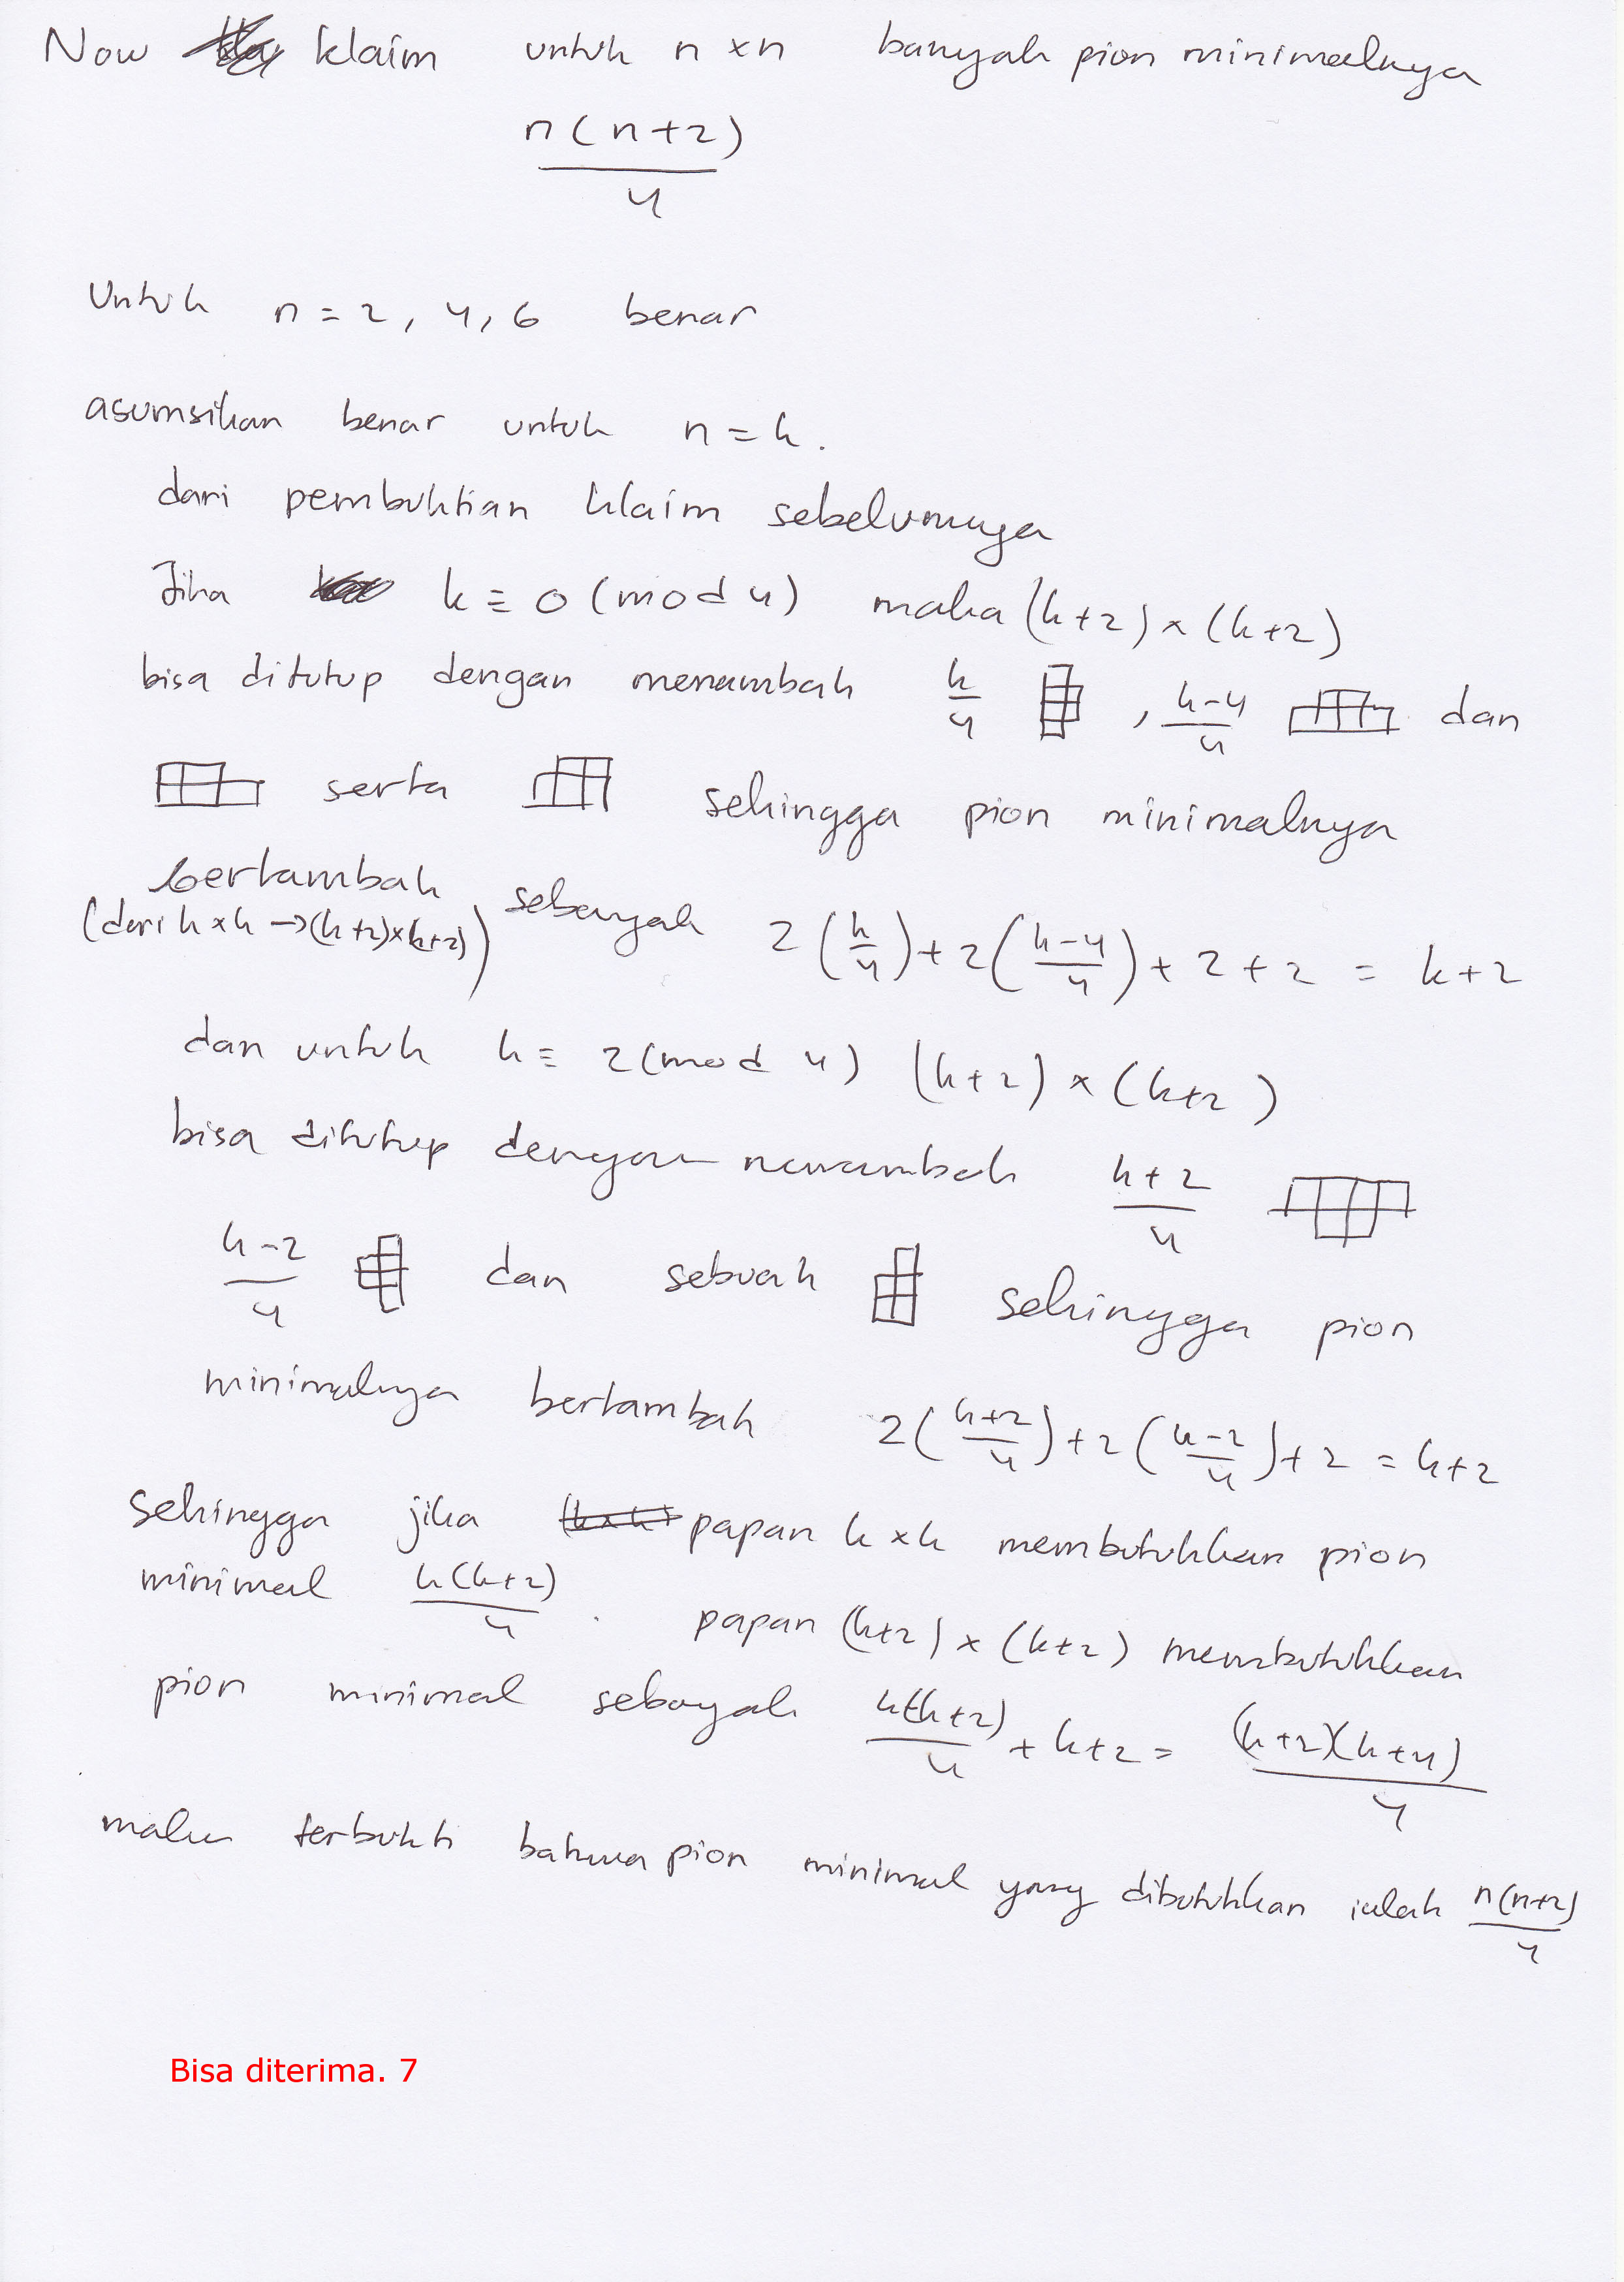 Now klaim untuk n × n banyak pion minimalnya
n(n+2)/4
Untuk n = 2, 4, 6 benar
asumsikan benar untuk n = k.
dari pembuktian klaim sebelumnya
Jika k ≡ 0 (mod 4) maka (k+2) × (k+2)
bisa ditutup dengan menambah k/4 , (k-4)/4 dan
serta sehingga pion minimalnya
bertambah sebanyak 2(k/4) + 2((k-4)/4) + 2 + 2 = k+2
(dari k×k → (k+2)×(k+2))
dan untuk k ≡ 2 (mod 4) (k+2) × (k+2)
bisa ditutup dengan menambah (k+2)/4
(k-2)/4 dan sebuah sehingga pion
minimalnya bertambah 2((k+2)/4) + 2((k-2)/4) + 2 = k+2
sehingga jika papan k × k membutuhkan pion
minimal k(k+2)/4 . papan (k+2) × (k+2) membutuhkan
pion minimal sebayak k(k+2)/4 + k+2 = (k+2)(k+4)/4
maka terbukti bahwa pion minimal yang dibutuhkan ialah n(n+2)/4
Bisa diterima. 7